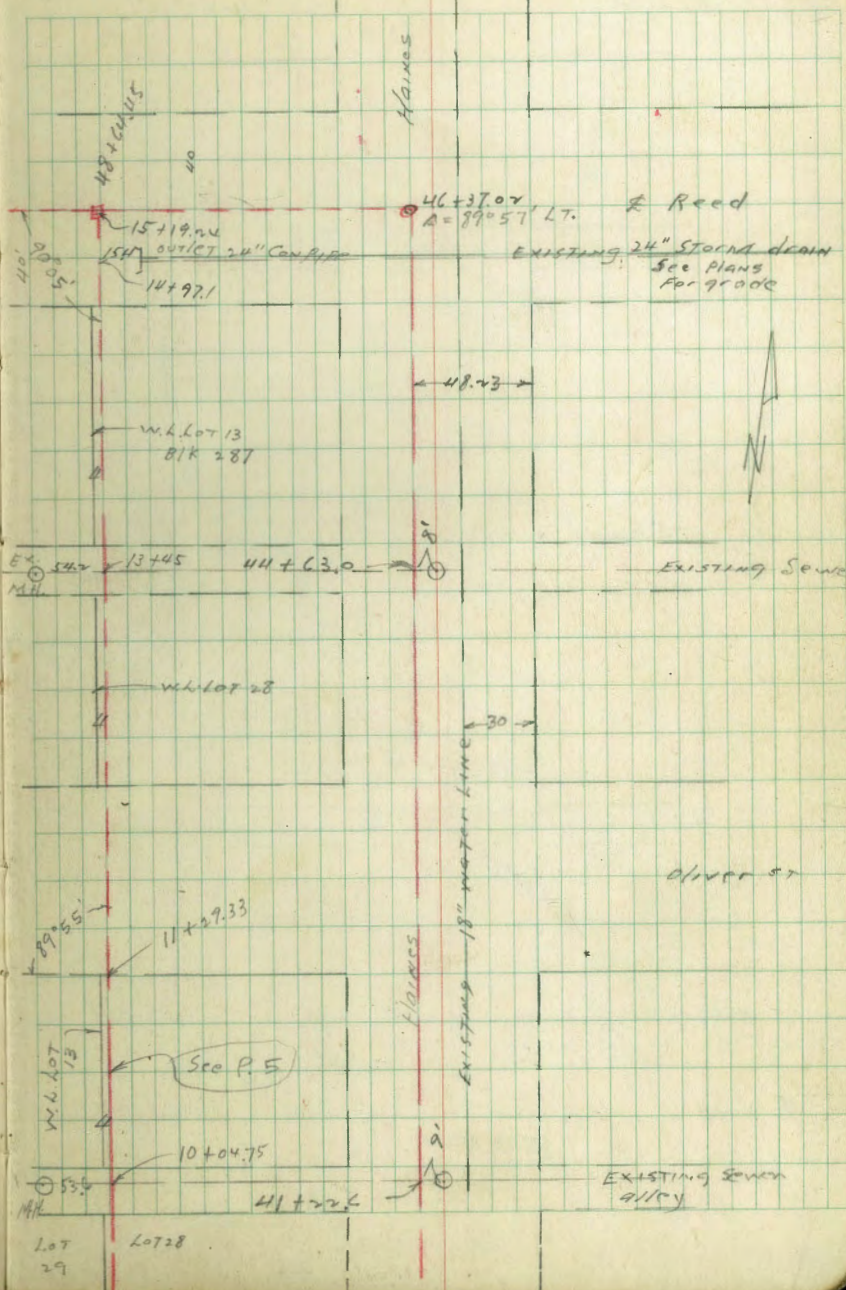 Haines
48+64.45
40
46+37.02
Δ=89°57' LT.
⅊ Reed
15+19.24
154' outlet 24" Con Pipe
14+97.1
Existing 24" Storm drain
See Plans
For grade
40'
48.23
W.L. Lot 13
Blk 287
4
N
8'
Ex.
M.H.
54.2
13+45
44+63.0
Existing Sewe
W.L. Lot 28
4
30
Existing 18" Water Line
Oliver St
89°55'
11+29.33
Haines
W.L. Lot
13
See P. 5
4
10+04.75
9'
M.H.
41+22.6
Existing Sewer
alley
Lot
29
Lot 28